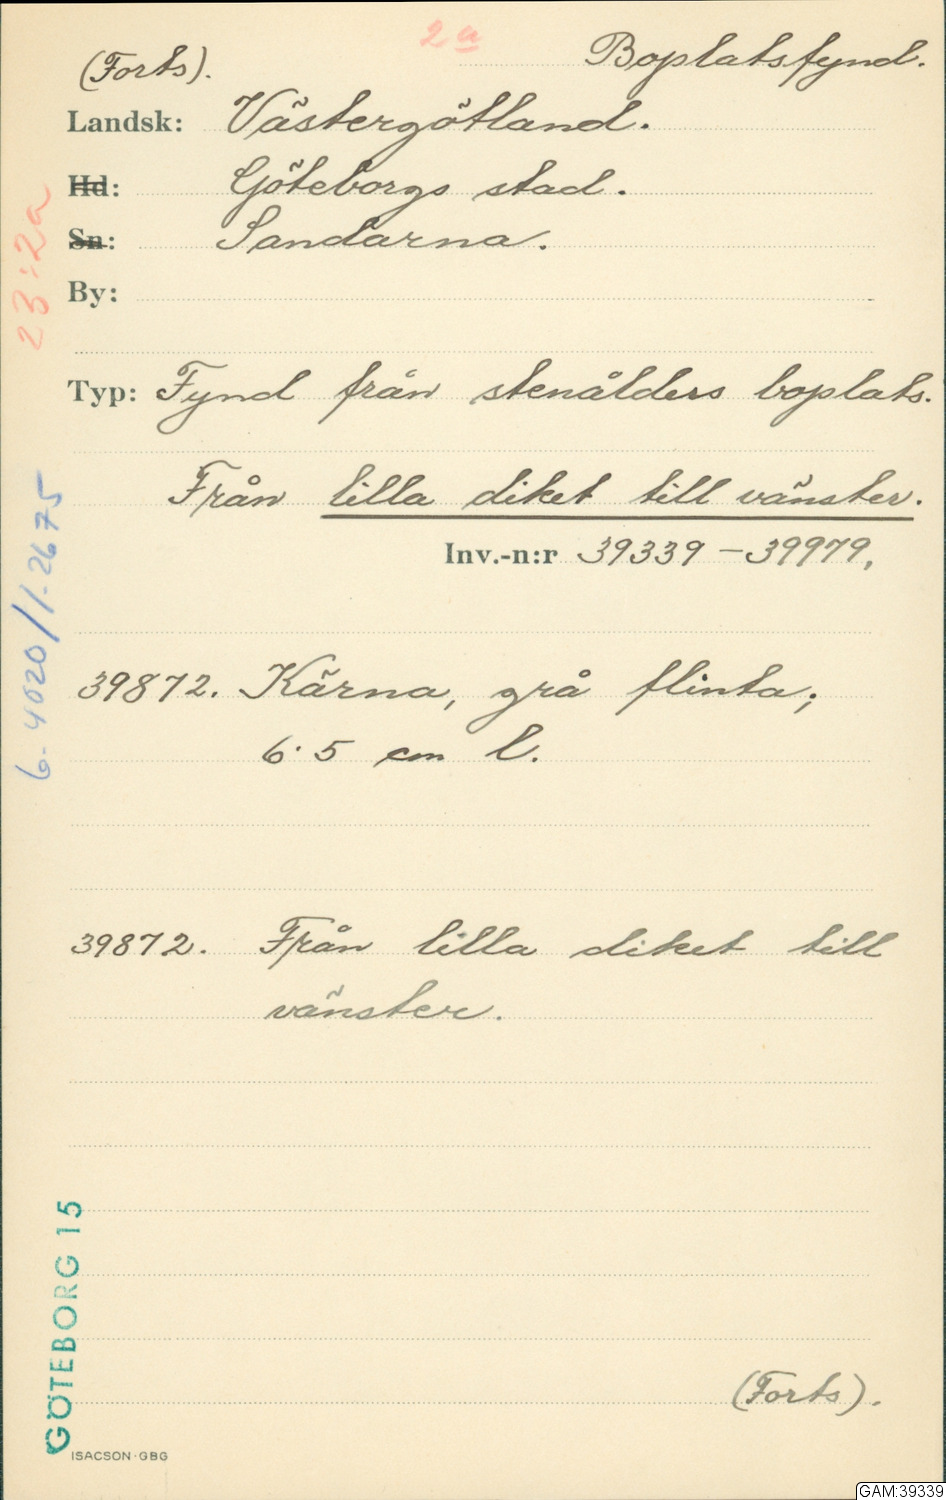 2a
(Forts). Boplatsfynd.
Landsk: Västergötland.
Hd: Göteborgs stad.
Sn: Sandarna.
By:
23:2a
Typ: Fynd från stenålders boplats.
Från lilla diket till vänster.
Inv.-n:r 39339-39979,
6-4020/1-2675
39872. Kärna, grå flinta;
6.5 cm l.
39872. Från lilla diket till
vänster.
GÖTEBORG 15
(Forts).
ISACSON·GBG
GAM:39339